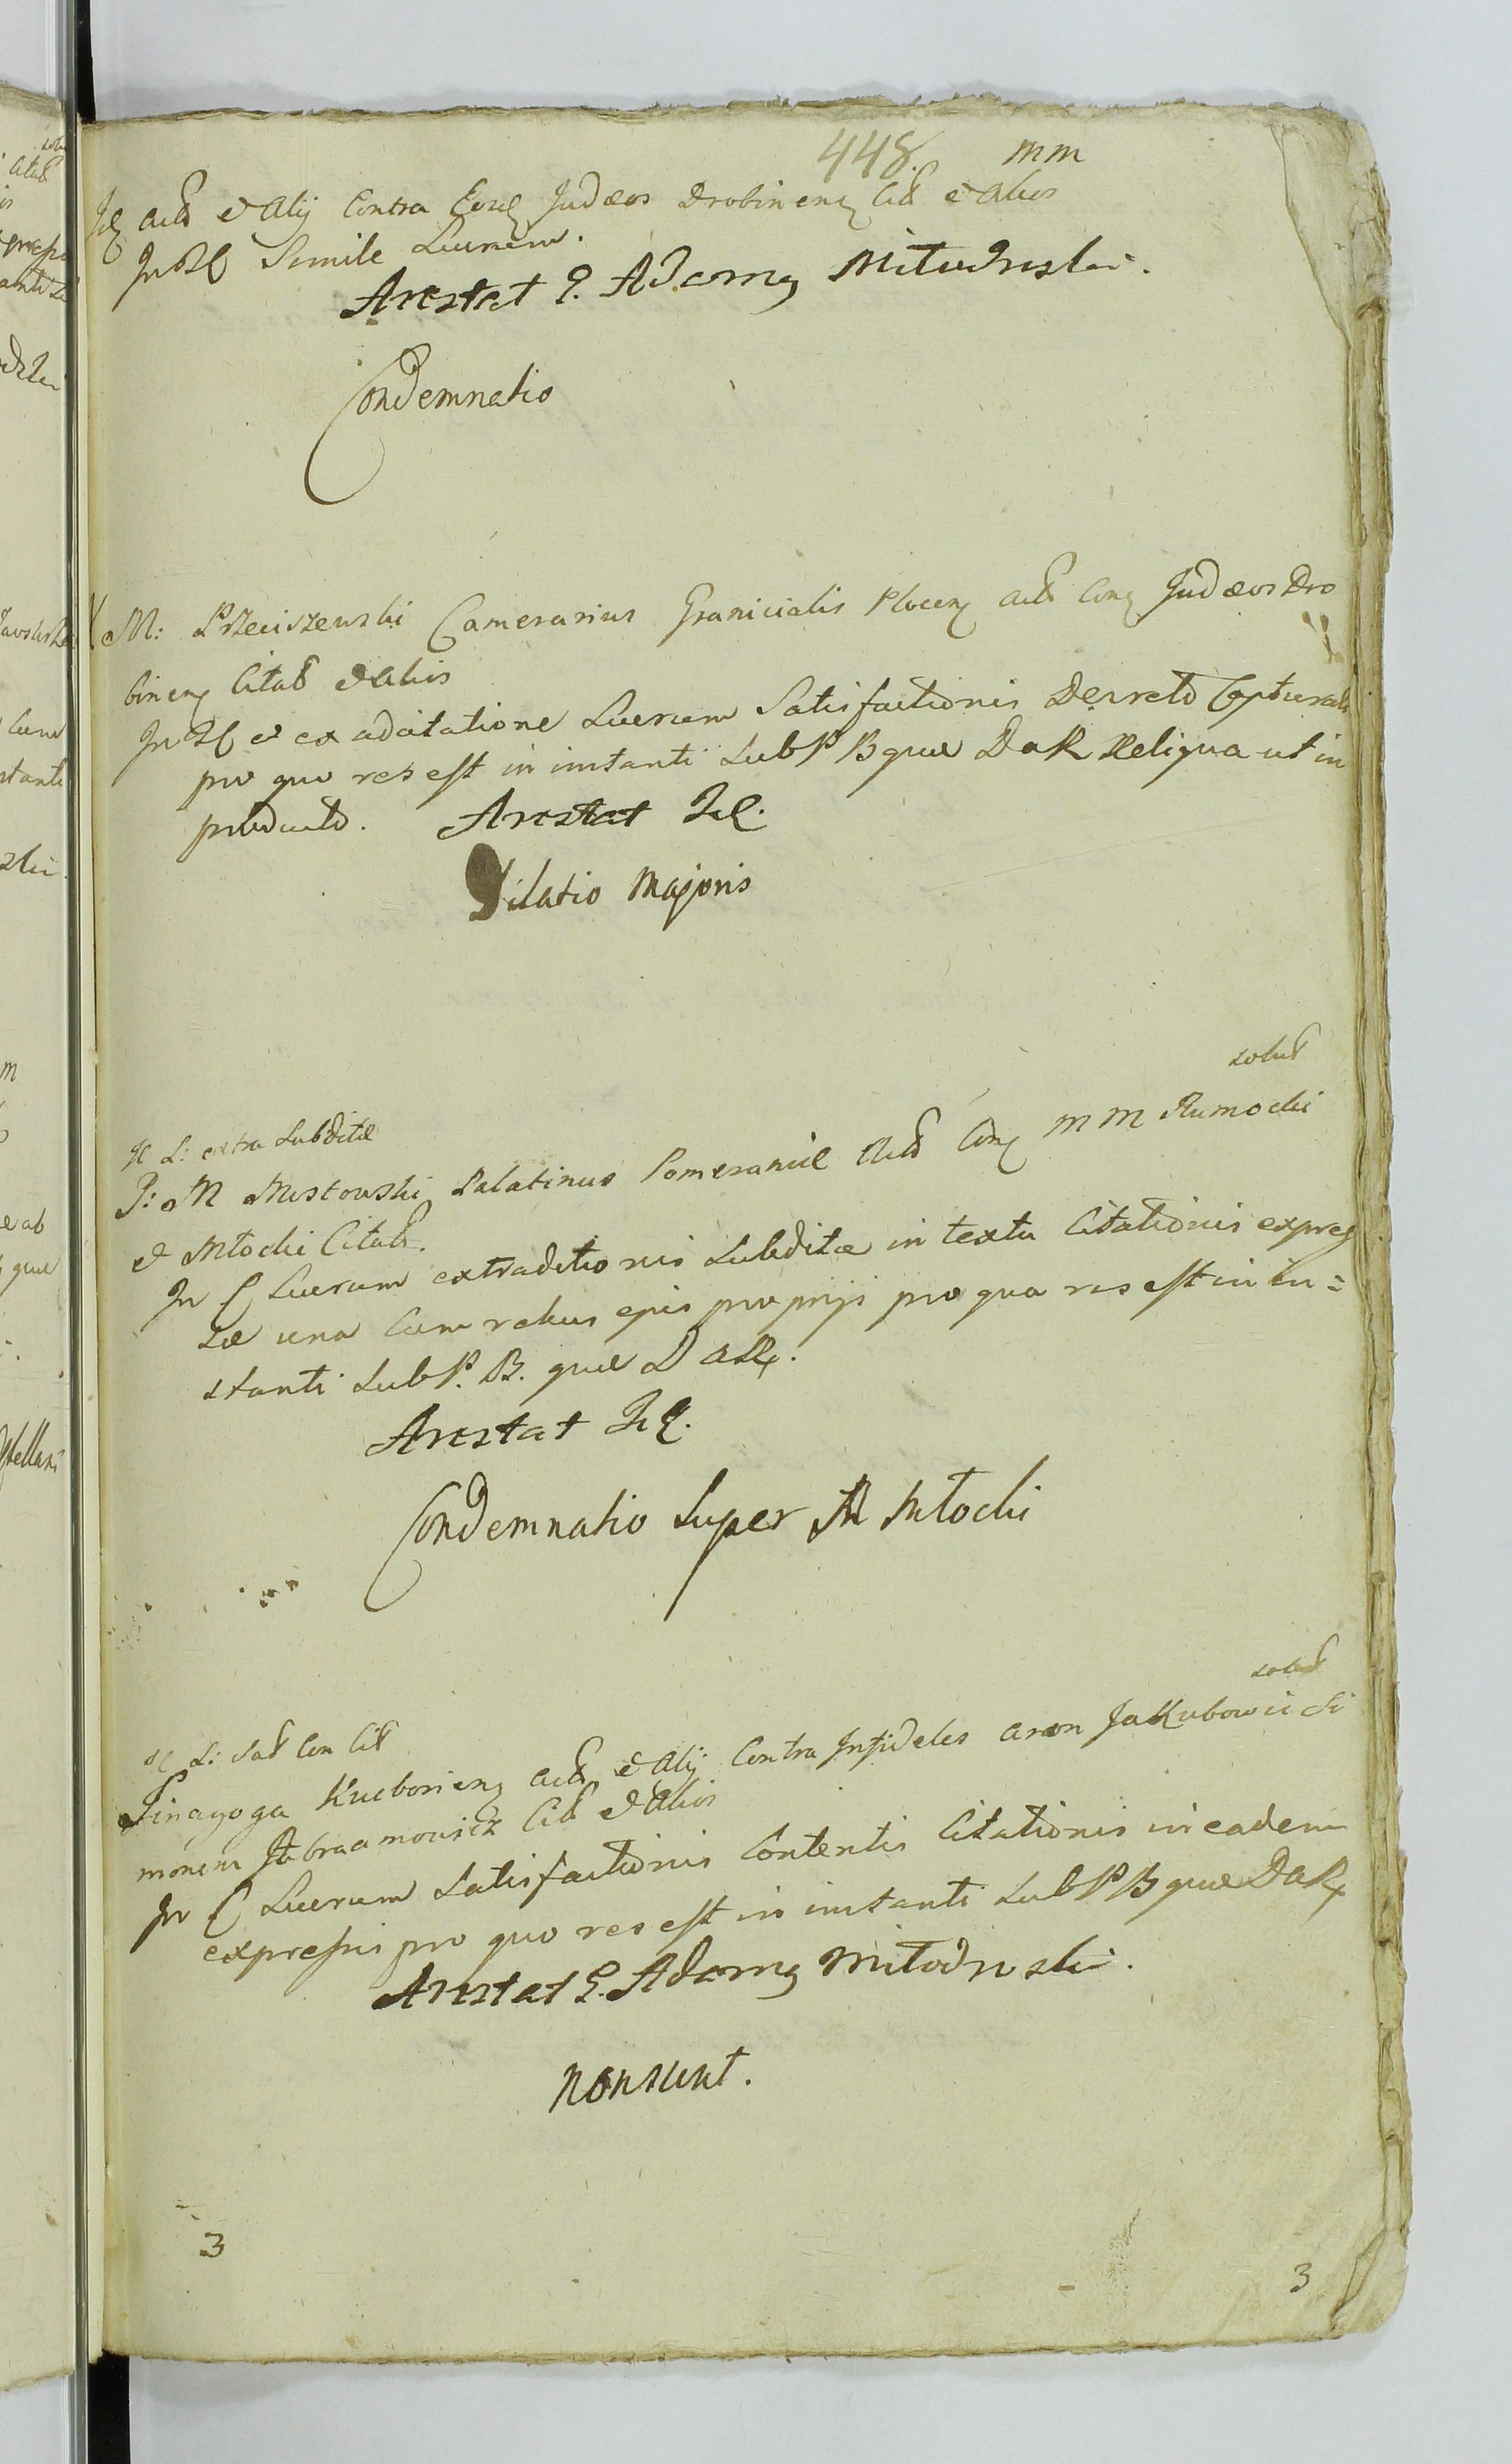 448. mm
Id act et Alij Contra Eosd Judæos Drobinens Cit et Alios
In Simile Lucrum.
Arestat G. Adamq Mitodroski.
Condemnatio
M: Przeciszewski Camerarius Granicialis Plocens act Con Judæos Dro
binens Citat et Alios
In et ex adcitatione Lucrum Satisfactionis Decreto Captural
pro quo res est in instanti Sub P B quæ D a R Reliqua ut in
producto. Arestat Id.
Dilatio Majoris
solut
N L: extra Subditæ
J: M Mostowski Palatinus Pomeraniæ Act Con M M Rumocki
et Młocki Citat.
In C Lucrum extraditionis Subditæ in textu Citationis expres
sæ una Cum rebus ejus proprijs pro qua res est in in=
stanti Sub P. B. quæ D a R.
Arestat Id.
Condemnatio Super M Młocki
solut
N L: Sat Con Cit
Sinagoga Kuchoriens act et Alij Contra Infideles Aron Jakubowicz Si
monem Abraamowicz Cit et Alios
In C Lucrum Satisfactionis Contentis Citationis in eadem
expressis pro quo res est in instanti Sub P B quæ D a R
Arestat G. Adamq Mitodroski.
non sunt.
3 3